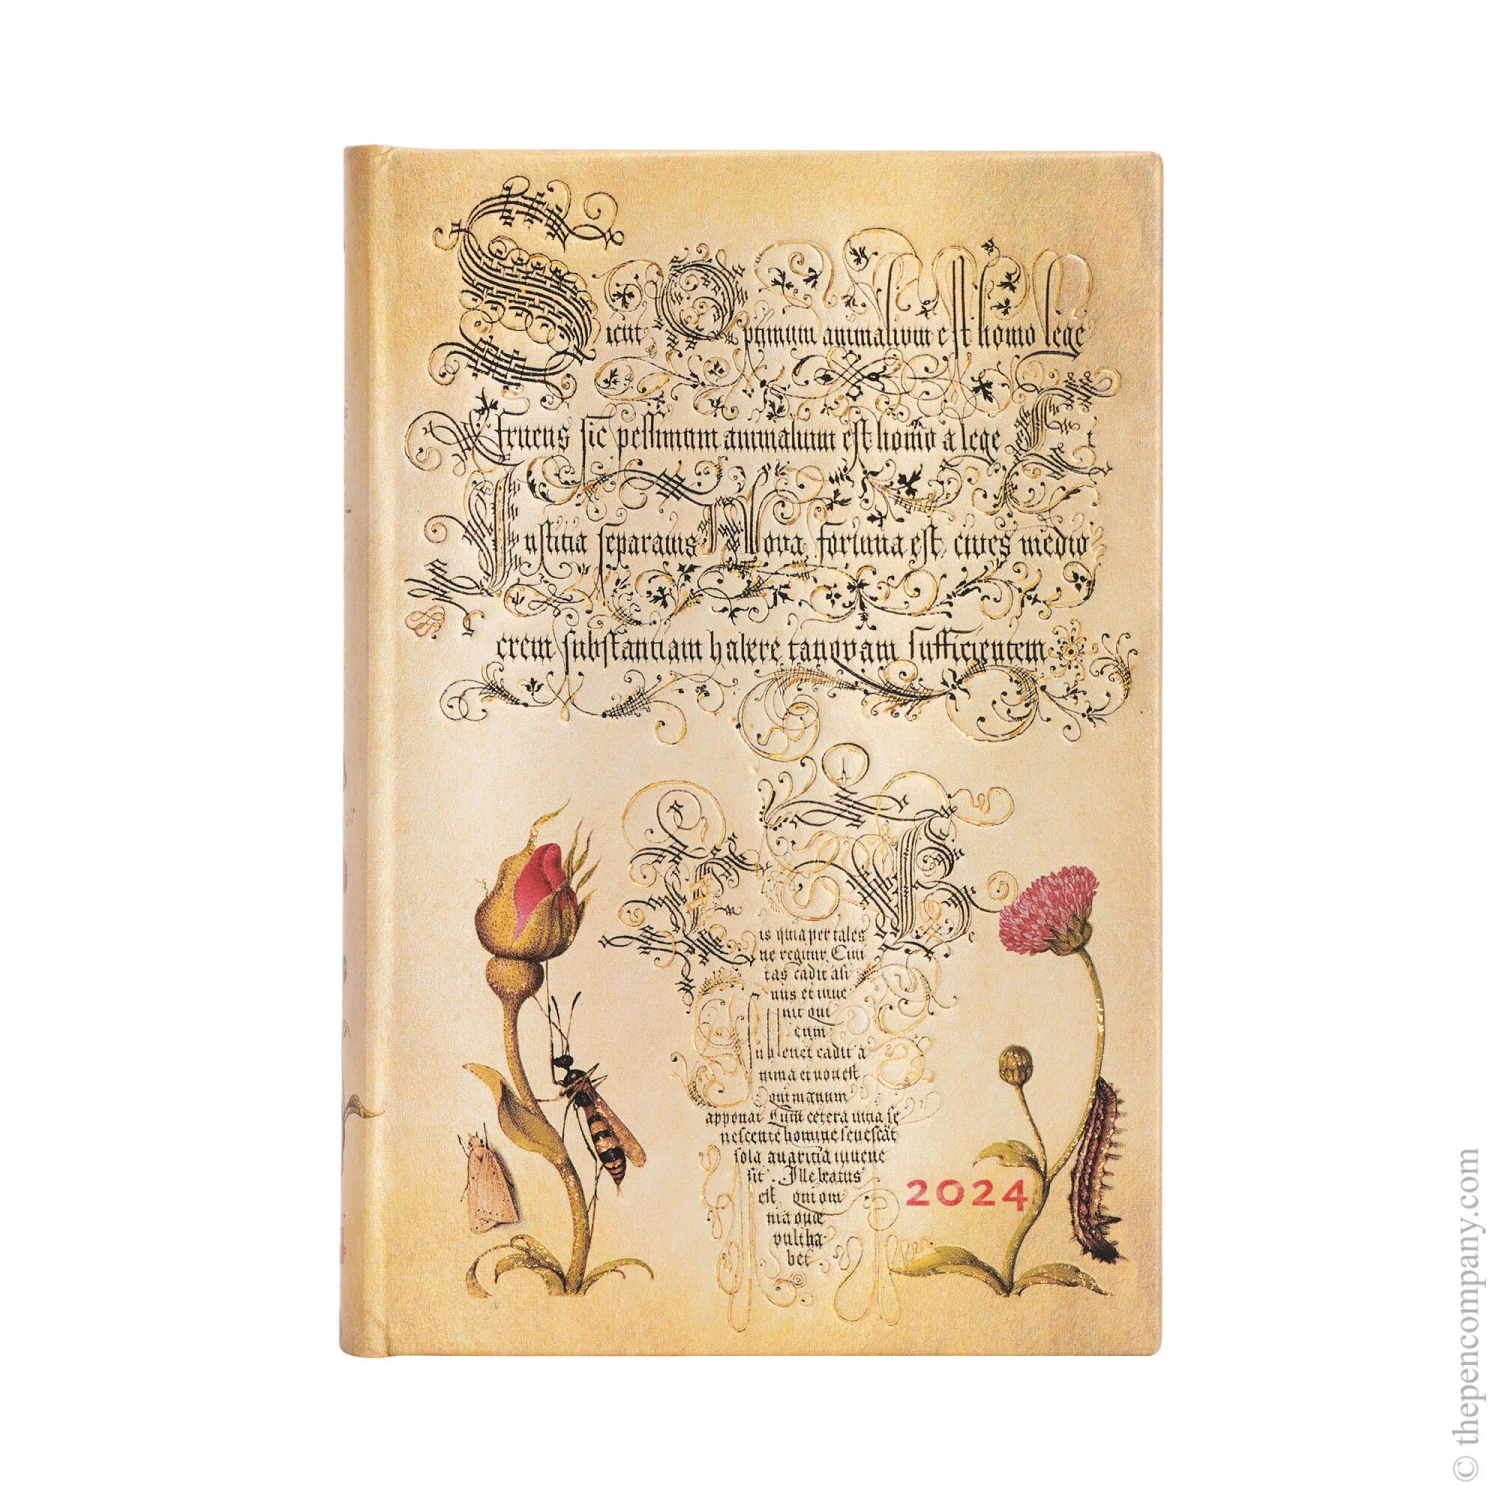 Sicut Optimum animalium est homo lege
fruens sic pessimum animalium est homo a lege Et
Iustitia separatus Nova fortuna est cives medio
crem substantiam habere tanquam sufficientem
is quia per tales Be
ne regitur Civi
tas cadit asi
nus et inve
nit qui
eum
Sublevet cadit a
nima et non est
qui manum
apponat Cum cetera vitia se
nescente homine senescāt
sola avaritia iuvene
sit. Ille beatus
est qui om
nia quæ
vult ha
bet
2024
© thepencompany.com